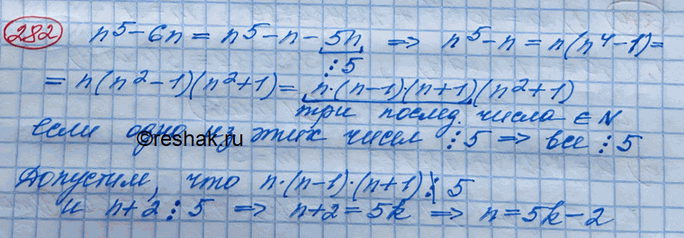 282 n⁵-6n = n⁵-n-5n ⇒ n⁵-n = n(n⁴-1)=
⋮5
= n(n²-1)(n²+1) = n·(n-1)(n+1)(n²+1)
три послед. числа ∈ N
©reshak.ru
если одно из этих чисел ⋮5 ⇒ все ⋮5
Допустим, что n·(n-1)·(n+1) ⋮̸ 5
и n+2⋮5 ⇒ n+2=5k ⇒ n=5k-2